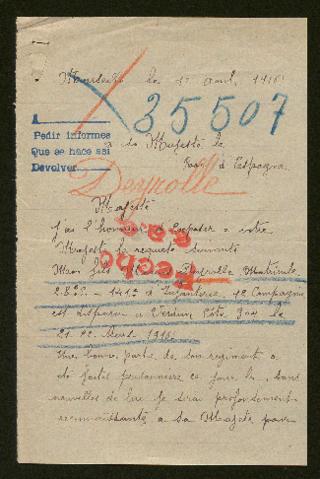 le 17 avril, 1916
35507
A
Pedir informes
Que se hace así
Devolver
a Sa Majesté le
Roi d'Espagne
Deyrolle
Majesté
J'ai l'honneur d'exposer a votre
Majesté la requete suivante
Hecho
Mon fils Deyrolle Matricule
141e d'Infanterie, 12 Compagnie
est disparu a Verdun Côte 304 le
21-22 Mars 1916
Une bonne partie de son regiment a
été faite prisonniere ce jour la, sans
nouvelles de lui je serai profondement
reconnaissante a Sa Majesté pour